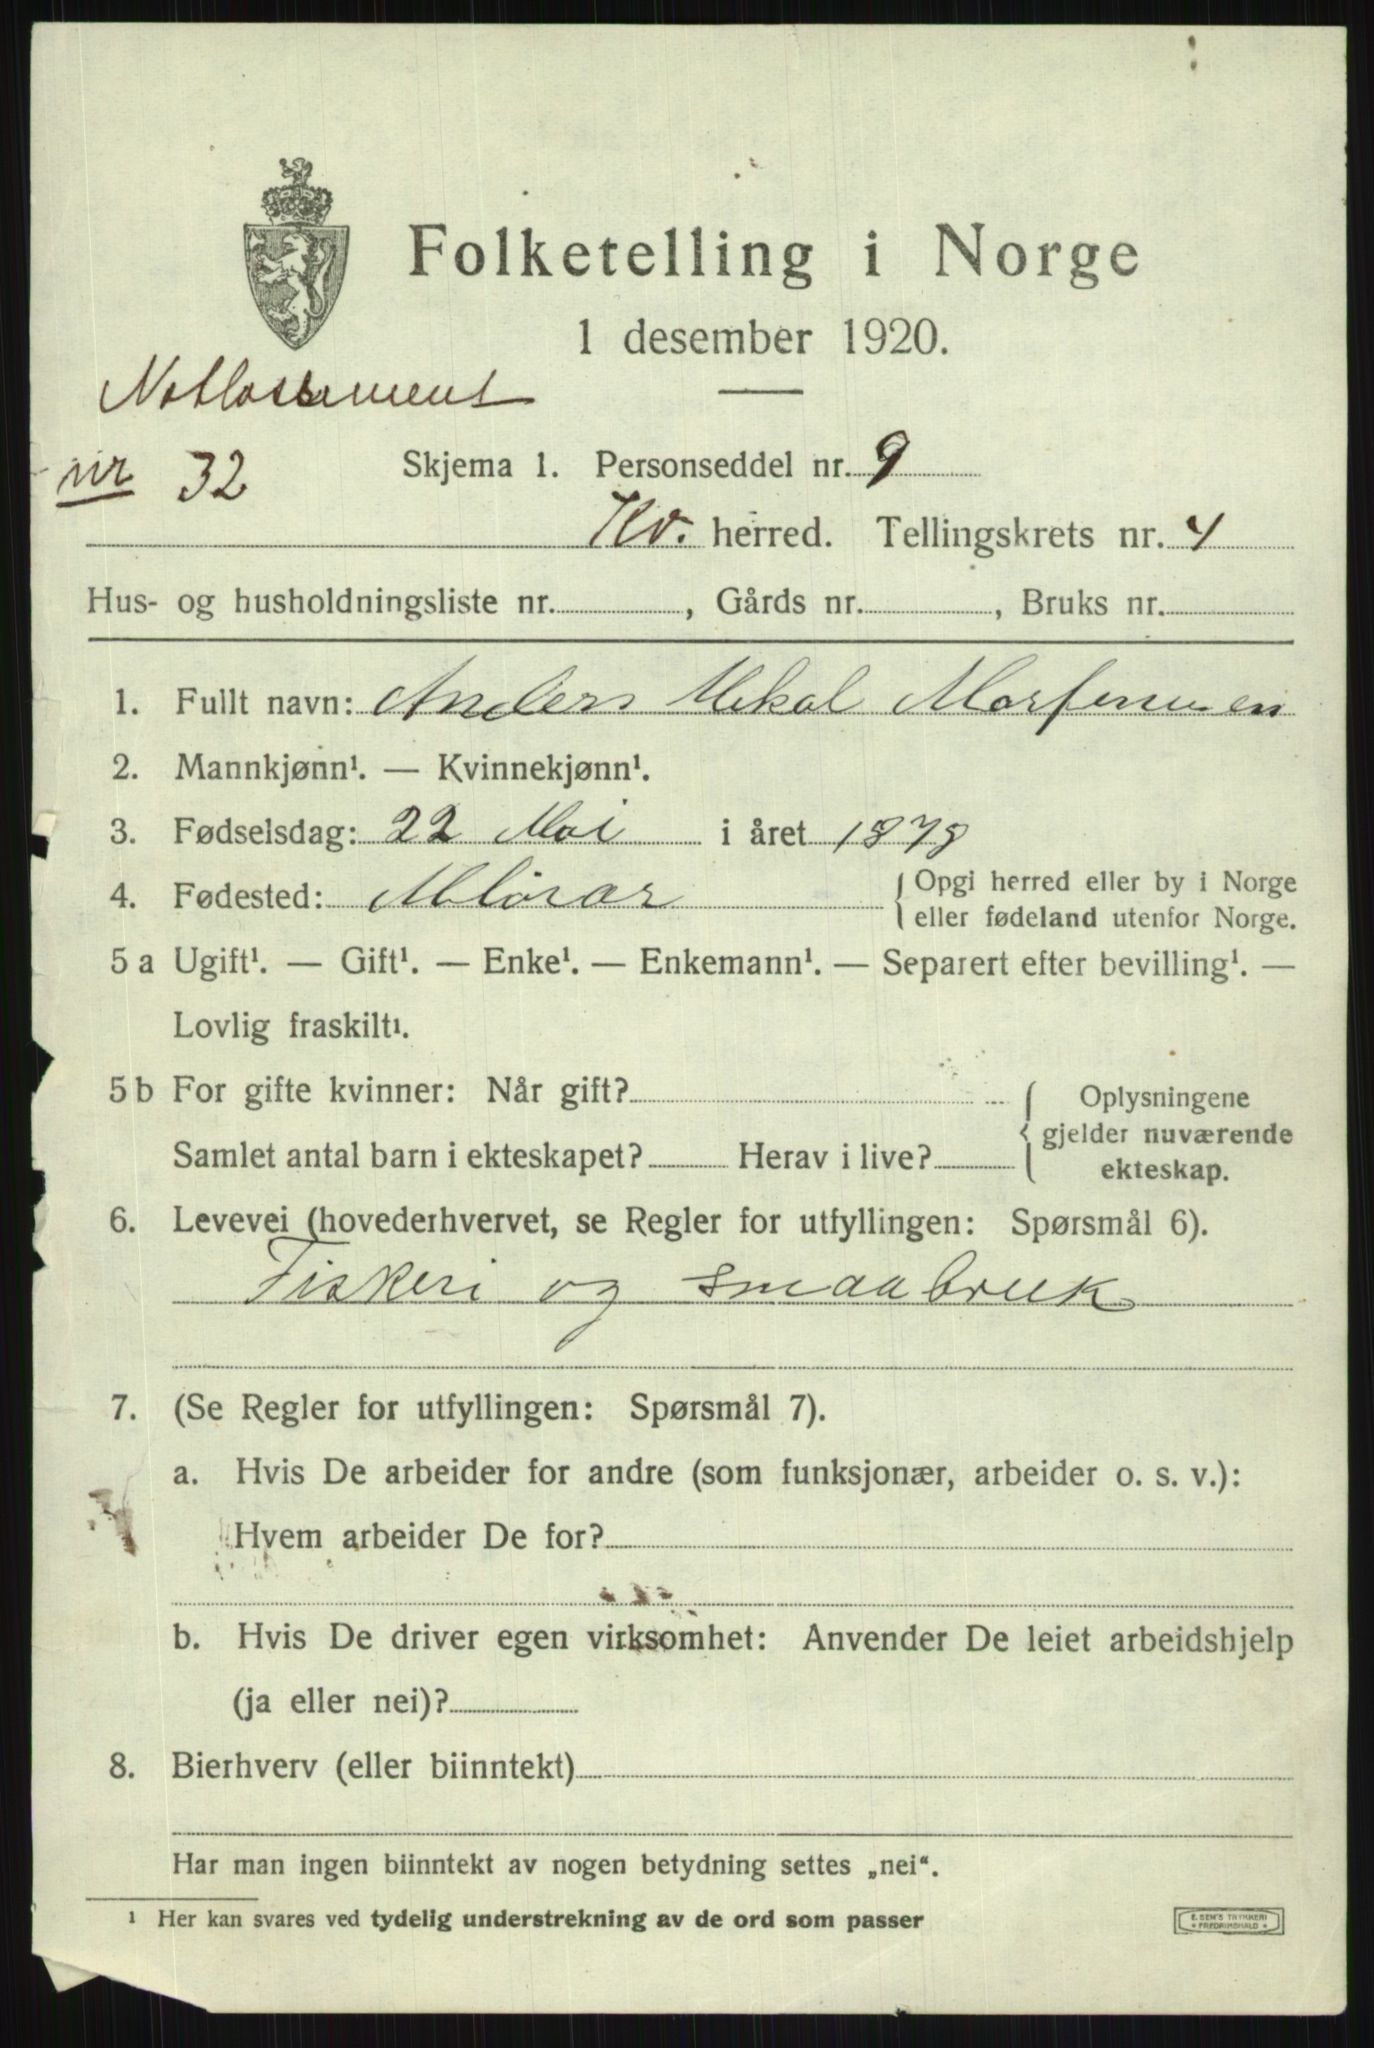 Folketelling i Norge
1 desember 1920.
nr 32
Skjema 1. Personseddel nr. 9
Kv. herred. Tellingskrets nr. 4
Hus- og husholdningsliste nr. , Gårds nr. , Bruks nr.
1. Fullt navn: Anders Mekal
2. Mannkjønn¹. — Kvinnekjønn¹.
3. Fødselsdag: 22 Mai i året 1878
4. Fødested:
Opgi herred eller by i Norge
eller fødeland utenfor Norge.
5 a Ugift¹. — Gift¹. — Enke¹. — Enkemann¹. — Separert efter bevilling¹. —
Lovlig fraskilt¹.
5 b For gifte kvinner: Når gift?
Samlet antal barn i ekteskapet? Herav i live?
Oplysningene
gjelder nuværende
ekteskap.
6. Levevei (hovederhvervet, se Regler for utfyllingen: Spørsmål 6).
Fiskeri og smaabruk
7. (Se Regler for utfyllingen: Spørsmål 7).
a. Hvis De arbeider for andre (som funksjonær, arbeider o. s. v.):
Hvem arbeider De for?
b. Hvis De driver egen virksomhet: Anvender De leiet arbeidshjelp
(ja eller nei)?
8. Bierhverv (eller biinntekt)
Har man ingen biinntekt av nogen betydning settes „nei“.
¹ Her kan svares ved tydelig understrekning av de ord som passer
E. SEM'S TRYKKERI
FREDRIKSHALD